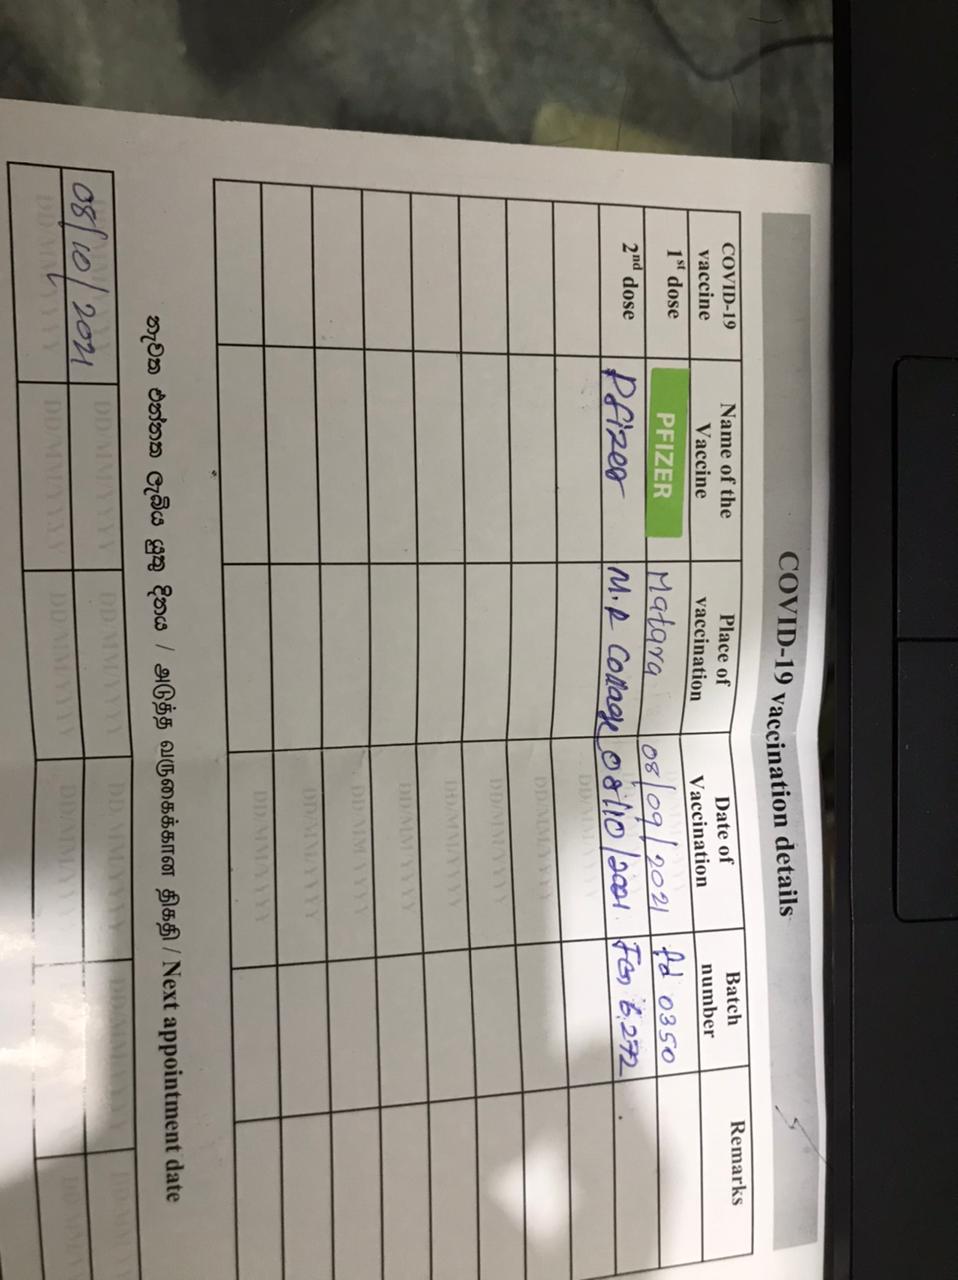 COVID-19 vaccination details
COVID-19 vaccine Name of the Vaccine Place of vaccination Date of Vaccination Batch number Remarks
1st dose PFIZER Matara 08/09/2021 fd 0350
2nd dose Pfizer M.R Collage 08/10/2021 6272
DD/MM/YYYY
DD/MM/YYYY
DD/MM/YYYY
DD/MM/YYYY
DD/MM/YYYY
DD/MM/YYYY
DD/MM/YYYY
නැවත එන්නත ලැබිය යුතු දිනය / அடுத்த வருகைக்கான திகதி / Next appointment date
08/10/2021 DD/MM/YYYY DD/MM/YYYY DD/MM/YYYY DD/MM/YYYY DD/MM/YYYY
DD/MM/YYYY DD/MM/YYYY DD/MM/YYYY DD/MM/YYYY DD/MM/YYYY